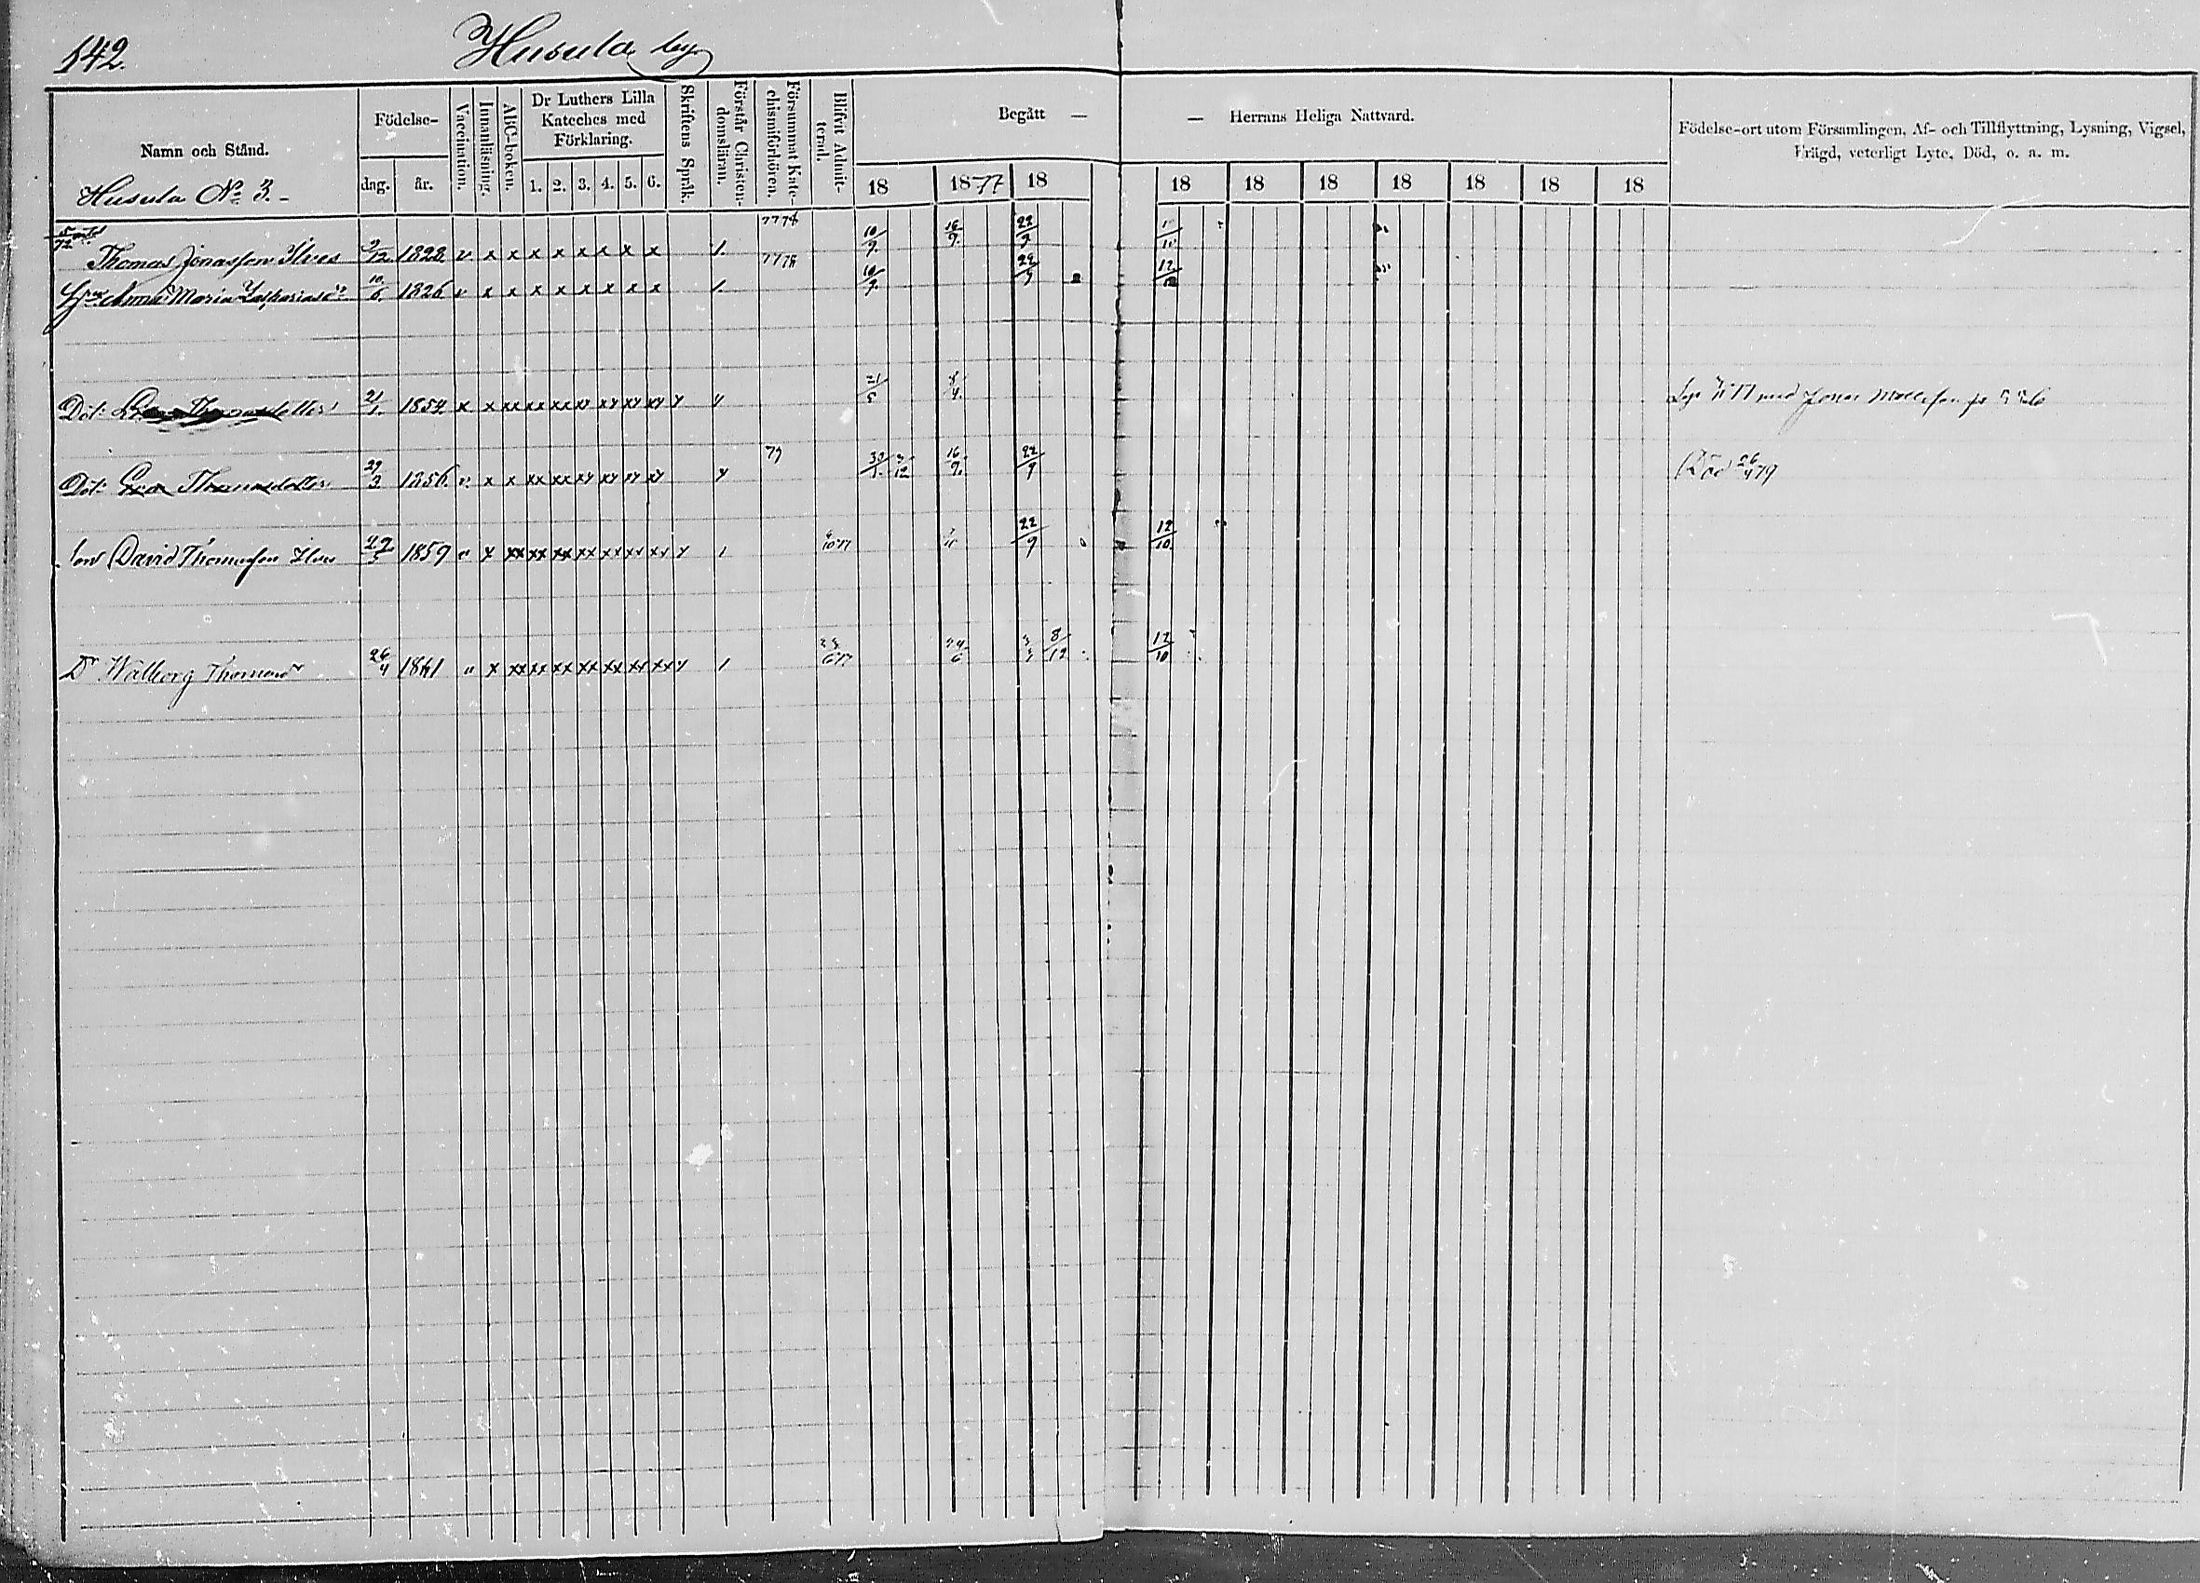 142.
Husula by
Namn och Stånd.
Födelse-
dag.
år.
Vaccination.
Innanläsning.
ABC-boken.
Dr Luthers Lilla
Kateches med
Förklaring.
1. 2. 3. 4. 5. 6.
Skriftens Språk.
Förstår Christen-
domsläran.
Försummat Kate-
chismiförhören.
Blifvit Admit-
terad.
Begått — — Herrans Heliga Nattvard.
18 1877 18 18 18 18 18 18 18 18
Födelse-ort utom Församlingen, Af- och Tillflyttning, Lysning, Vigsel,
Frägd, veterligt Lyte, Död, o. a. m.
Husula No 3.
Thomas Jonasson Ilves 9/12 1828 v x x x x x x x x 1. 7778 10/9 16/9 22/9
Hu Anna Maria 10/6 1826 v x x x x x x x x 1. 7778 10/9 22/9 12/10
Dot: Thomasdotter 21/1 1854 x x xx xx xx xy xy xy xy y y 21/5 med Jonas
Dot: Eva Thomasdotter 29/3 1856 v. x x xx xx xy xy xy xy y 79 16/9 22/9 Död 26/4 79
Son David Thomasson Ilves 1859 v x xx xx xx xx xx xx xx x 1 22/9 12/10
Dr Walborg Thomasdr 26/4 1861 v x xx xx xx xx xx xx xx y 1 24/6 8/12 12/10